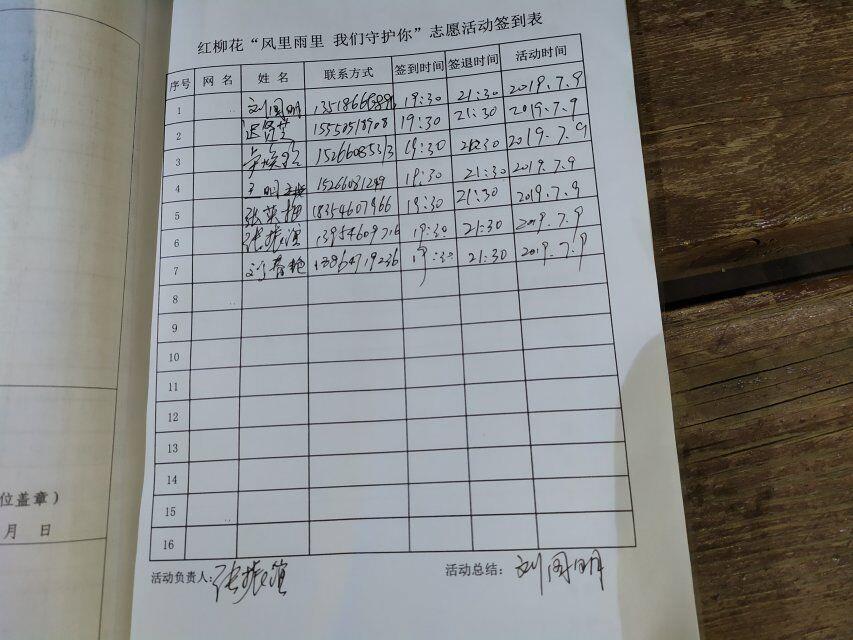 红柳花“风里雨里 我们守护你”志愿活动签到表
序号 网 名 姓 名 联系方式 签到时间 签退时间 活动时间
1 刘国明 19:30 21:30 2019.7.9
2 15550518908 19:30 21:30 2019.7.9
3 15266085313 19:30 21:30 2019.7.9
4 19:30 21:30 2019.7.9
5 张英梅 18354607966 19:30 21:30 2019.7.9
6 张振滨 13954609716 19:30 21:30 2019.7.9
7 刘春艳 13864719236 19:30 21:30 2019.7.9
8
9
10
11
12
13
14
15
16
活动负责人: 张振滨 活动总结: 刘国明
位盖章）
月 日